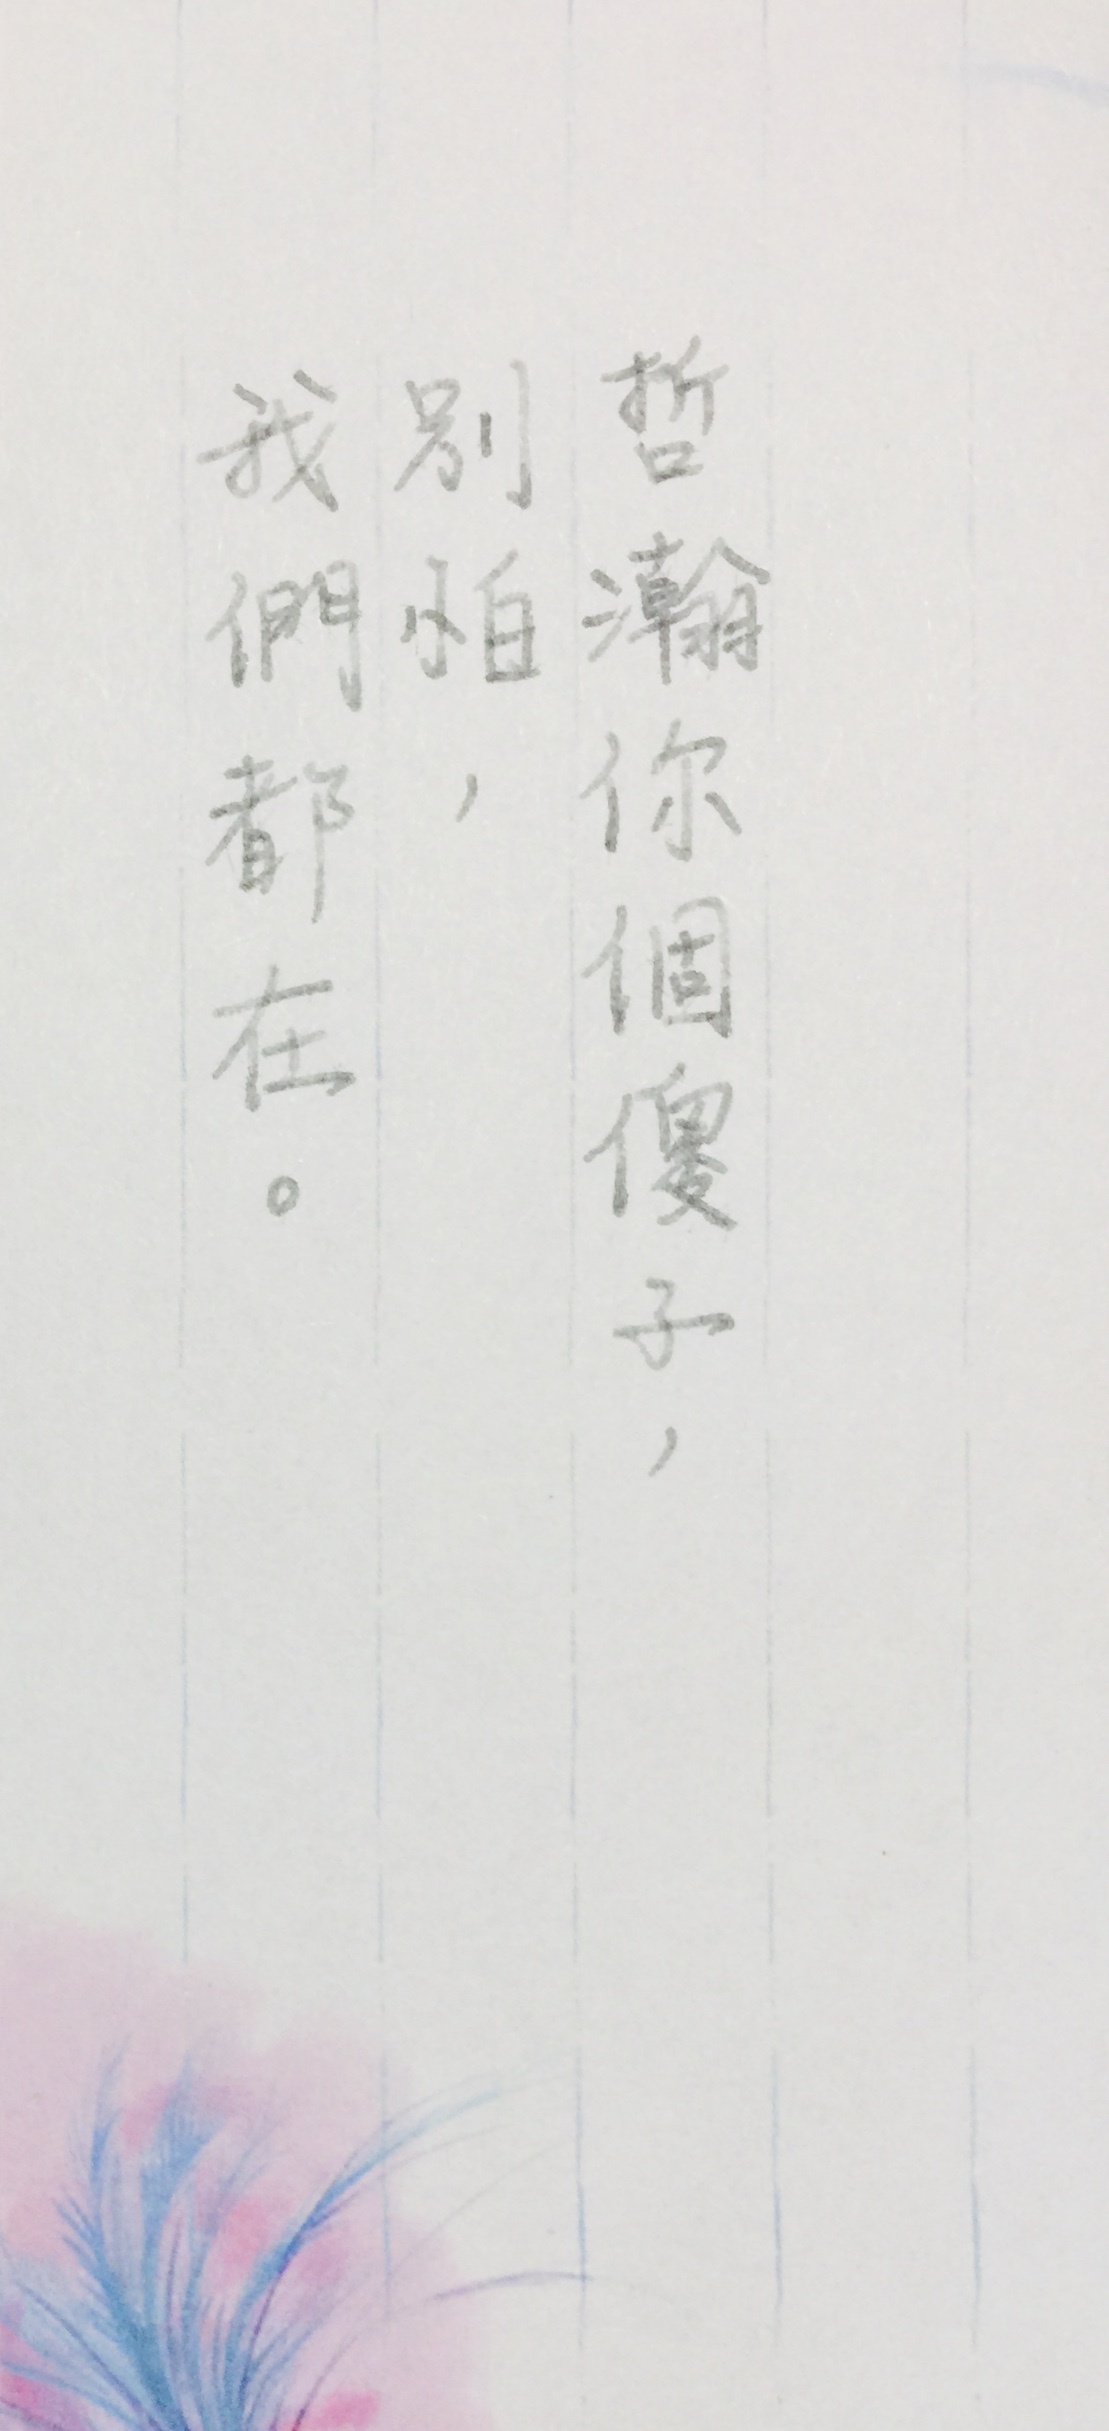 哲瀚你個傻子，
別怕，
我們都在。